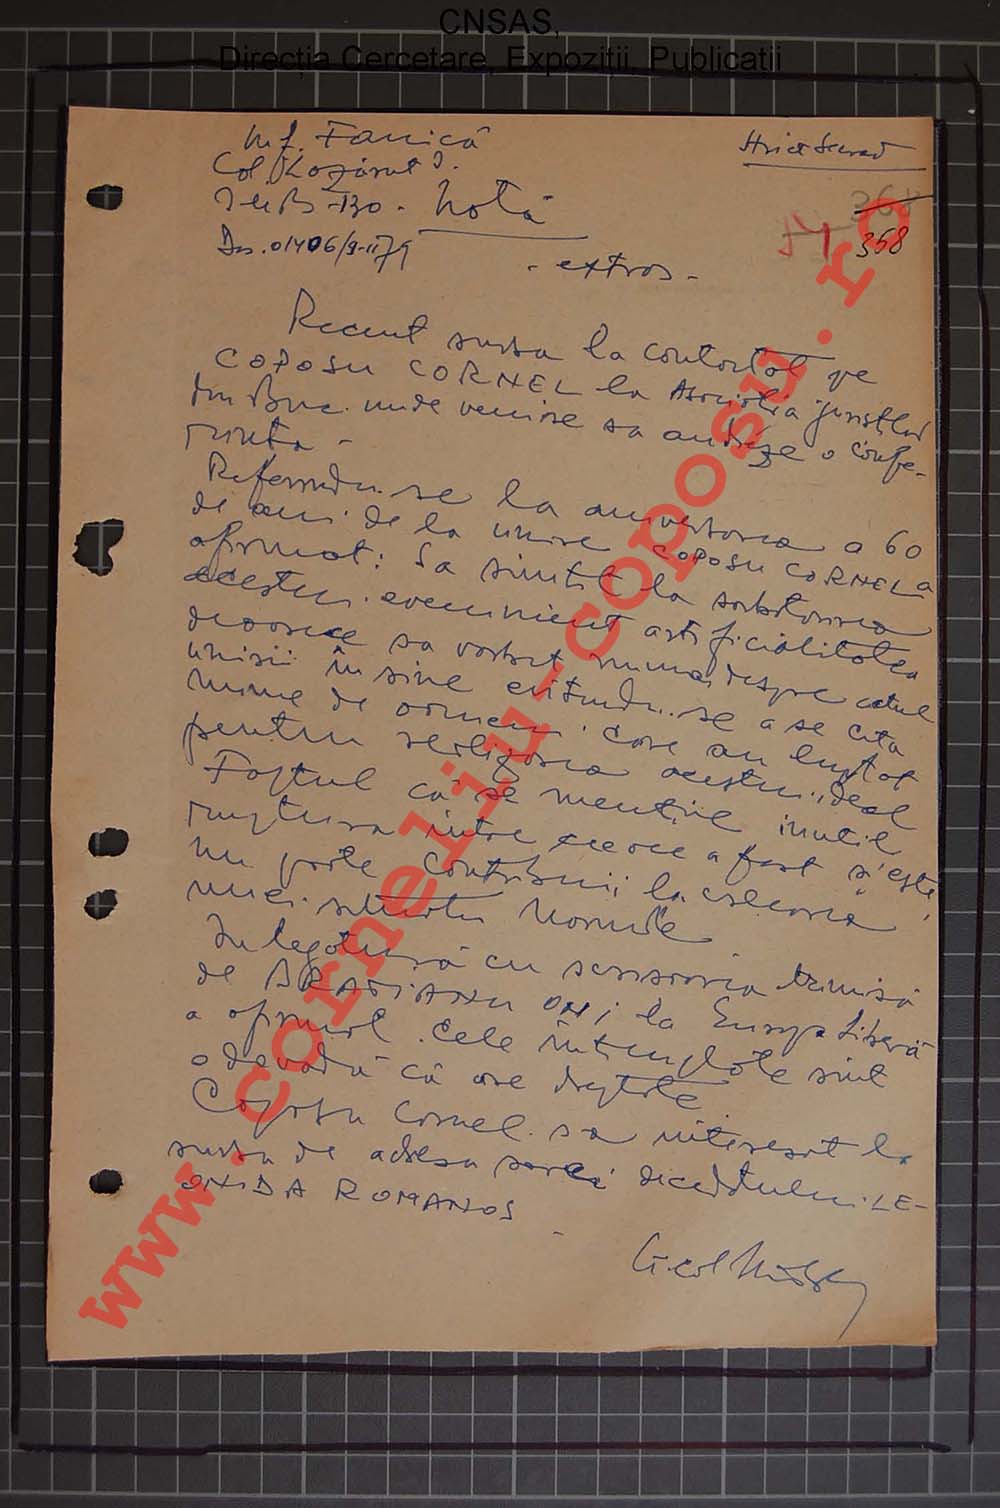 CNSAS,
Direcția Cercetare, Expoziții, Publicatii
Inf. Fănică
Strict Secret
Col. J.
368
Notă
368
Ds. 01406/9-II 79
- extras -
Recent sursa la contactat pe
COPOSU CORNEL la Asociatia juristilor
din Buc. unde venise sa audieze o confe-
rinta -
Referindu-se la aniversarea a 60
de ani de la unire COPOSU CORNEL a
afirmat: Sa simtit la sarbatorirea
acestui eveniment artificialitatea
deoarece sa vorbit numai despre actul
unirii în sine evitandu-se a se cita
nume de oameni care au luptat
pentru realizarea acestui ideal
Faptul că se mentine inutil
ruptura intre ceeace a fost si este,
nu poate contribui la crearea
unei situatii normale
In legătură cu scrisoarea trimisă
de BRATIANU la Europa Liberă
a afirmat cele întimplate sint
o dovadă că are dreptate
Coposu Cornel sa interesat la
sursa de adresa decedatului LE-
ONIDA ROMANOS -
www.corneliu-coposu.ro